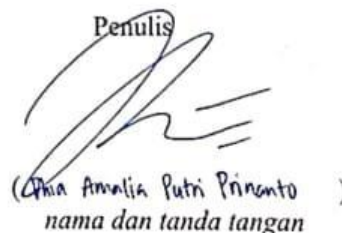 Penulis
( Amalia Putri Prinanto )
nama dan tanda tangan